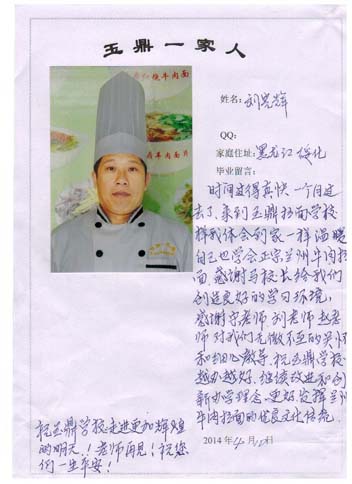 玉鼎一家人
姓名: 刘宪辉
QQ:
家庭住址: 黑龙江绥化
毕业留言:
时间过得真快一个月过
去了,来到玉鼎拉面学校
样我体会到家一样温暖
自己也学会正宗兰州牛肉拉
面,感谢马校长给我们
创造良好的学习环境,
感谢宁老师,刘老师赵老
师对我们无微不至的关怀
和细心教导,祝玉鼎学校
越办越好.继续改进和创
新办学理念,更好发挥兰州
牛肉拉面的优良文化传统.
2014年4月10日
祝玉鼎学校走进更加辉煌
的明天!老师再见!祝您
们一生平安!